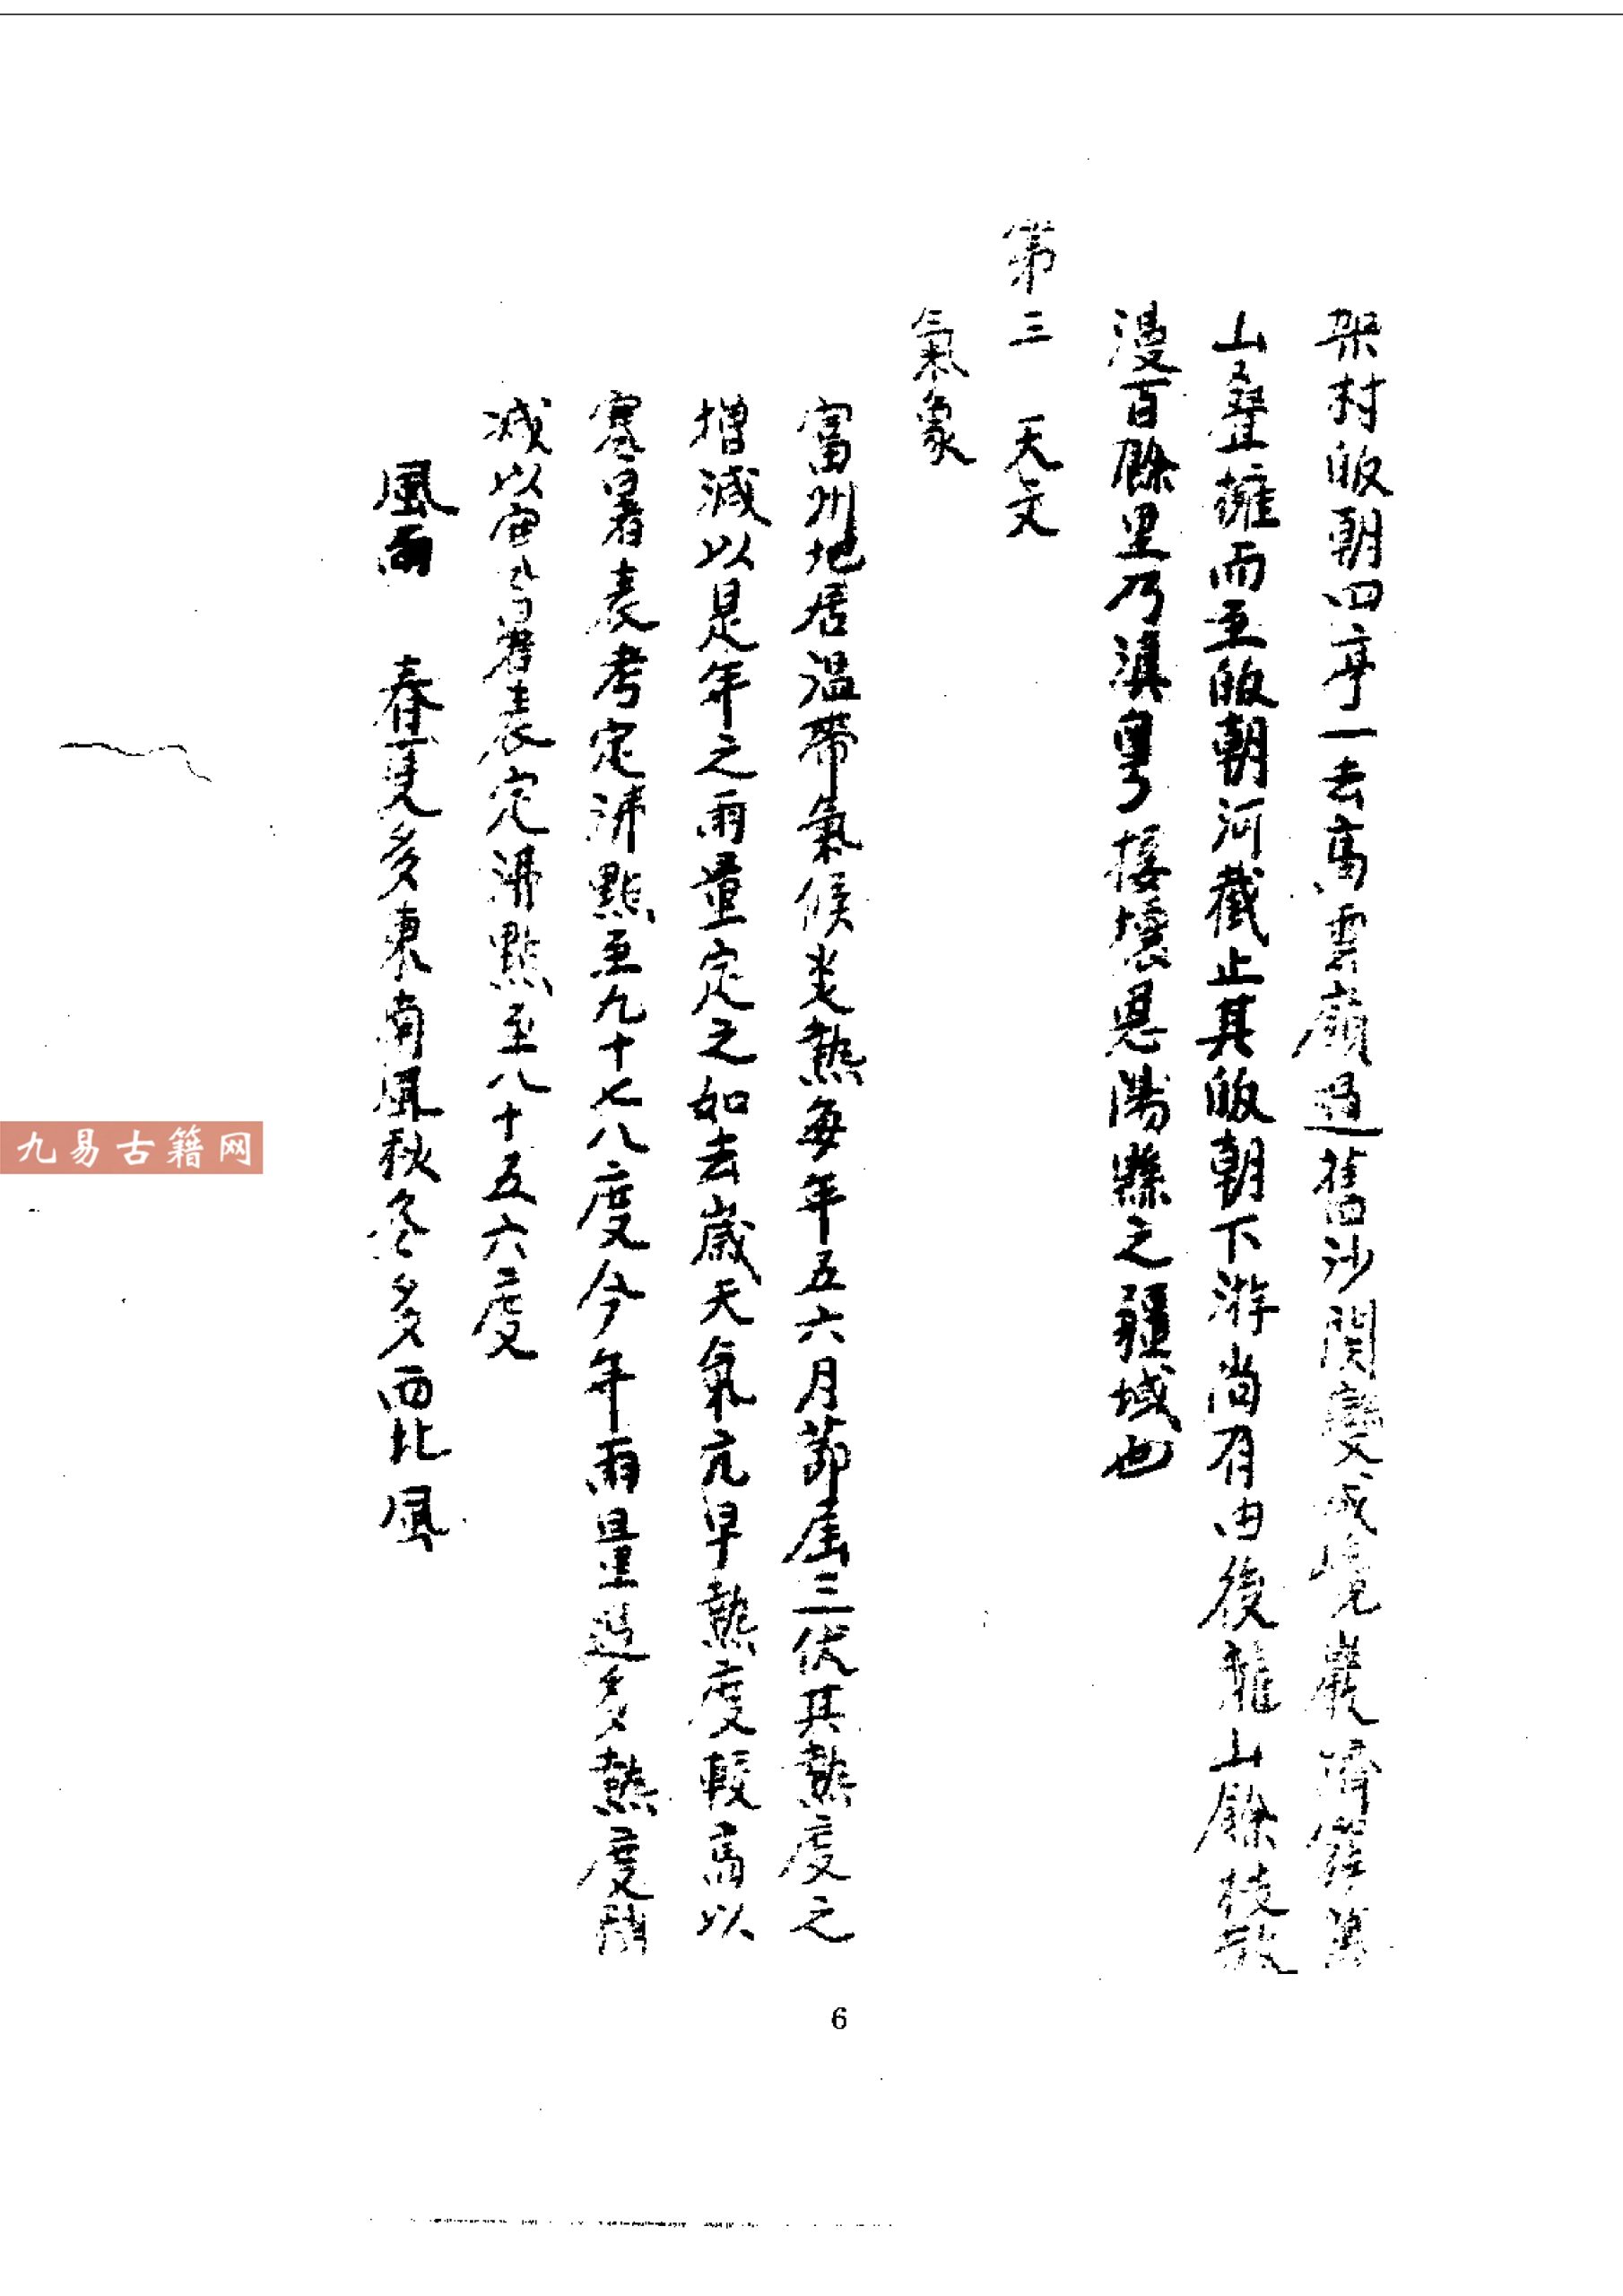 架村皈朝四亭一去高雲嶺過舊沙関變成境巖
山疊擁而至皈朝河截止其皈朝下游尚有由後龍山餘枝散
漫百餘里乃滇粤接壤恩陽縣之疆域也
第三 天文
氣象
富州地居温帶氣候炎熱每年五六月節届三伏其熱度之
增減以是年之雨量定之如去歲天氣亢旱熱度較高以
寒暑表考定沸點至九十七八度今年雨量過多熱度稍
減以寒暑表定沸點至八十五六度
風雨 春夏多東南風秋冬多西北風
6
九易古籍网